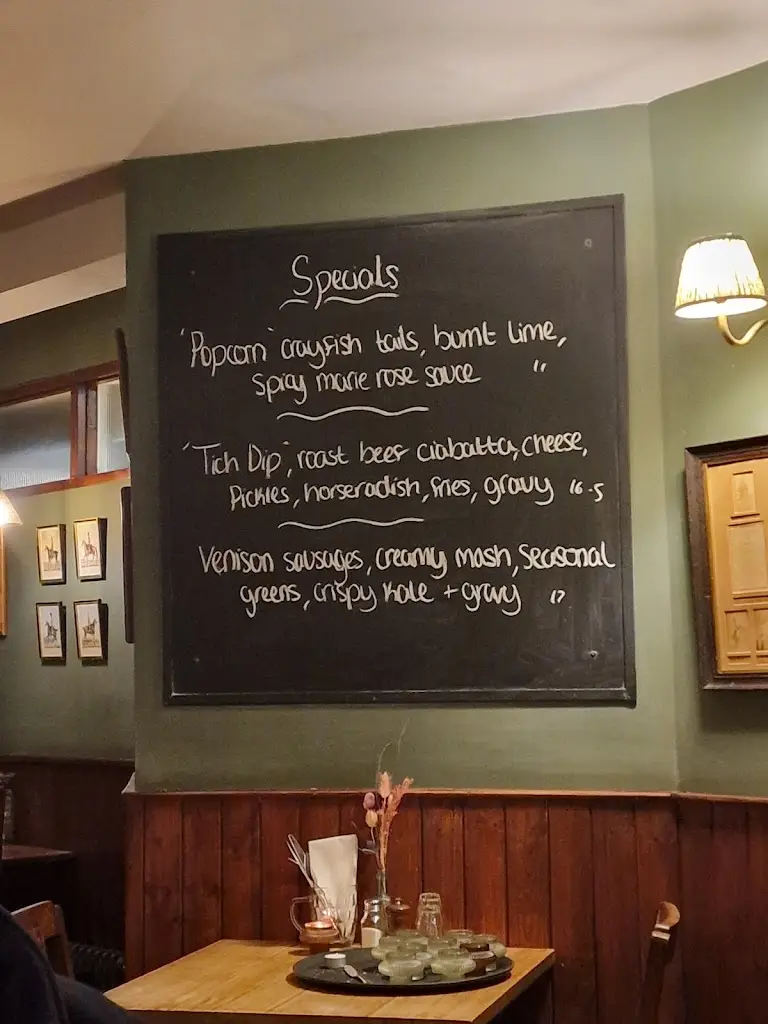 Specials
'Popcorn' crayfish tails, burnt lime,
spicy marie rose sauce 11
'Tich Dip', roast beef ciabatta, cheese,
Pickles, horseradish, fries, gravy 16.5
Venison sausages, creamy mash, seasonal
greens, crispy kale + gravy 17